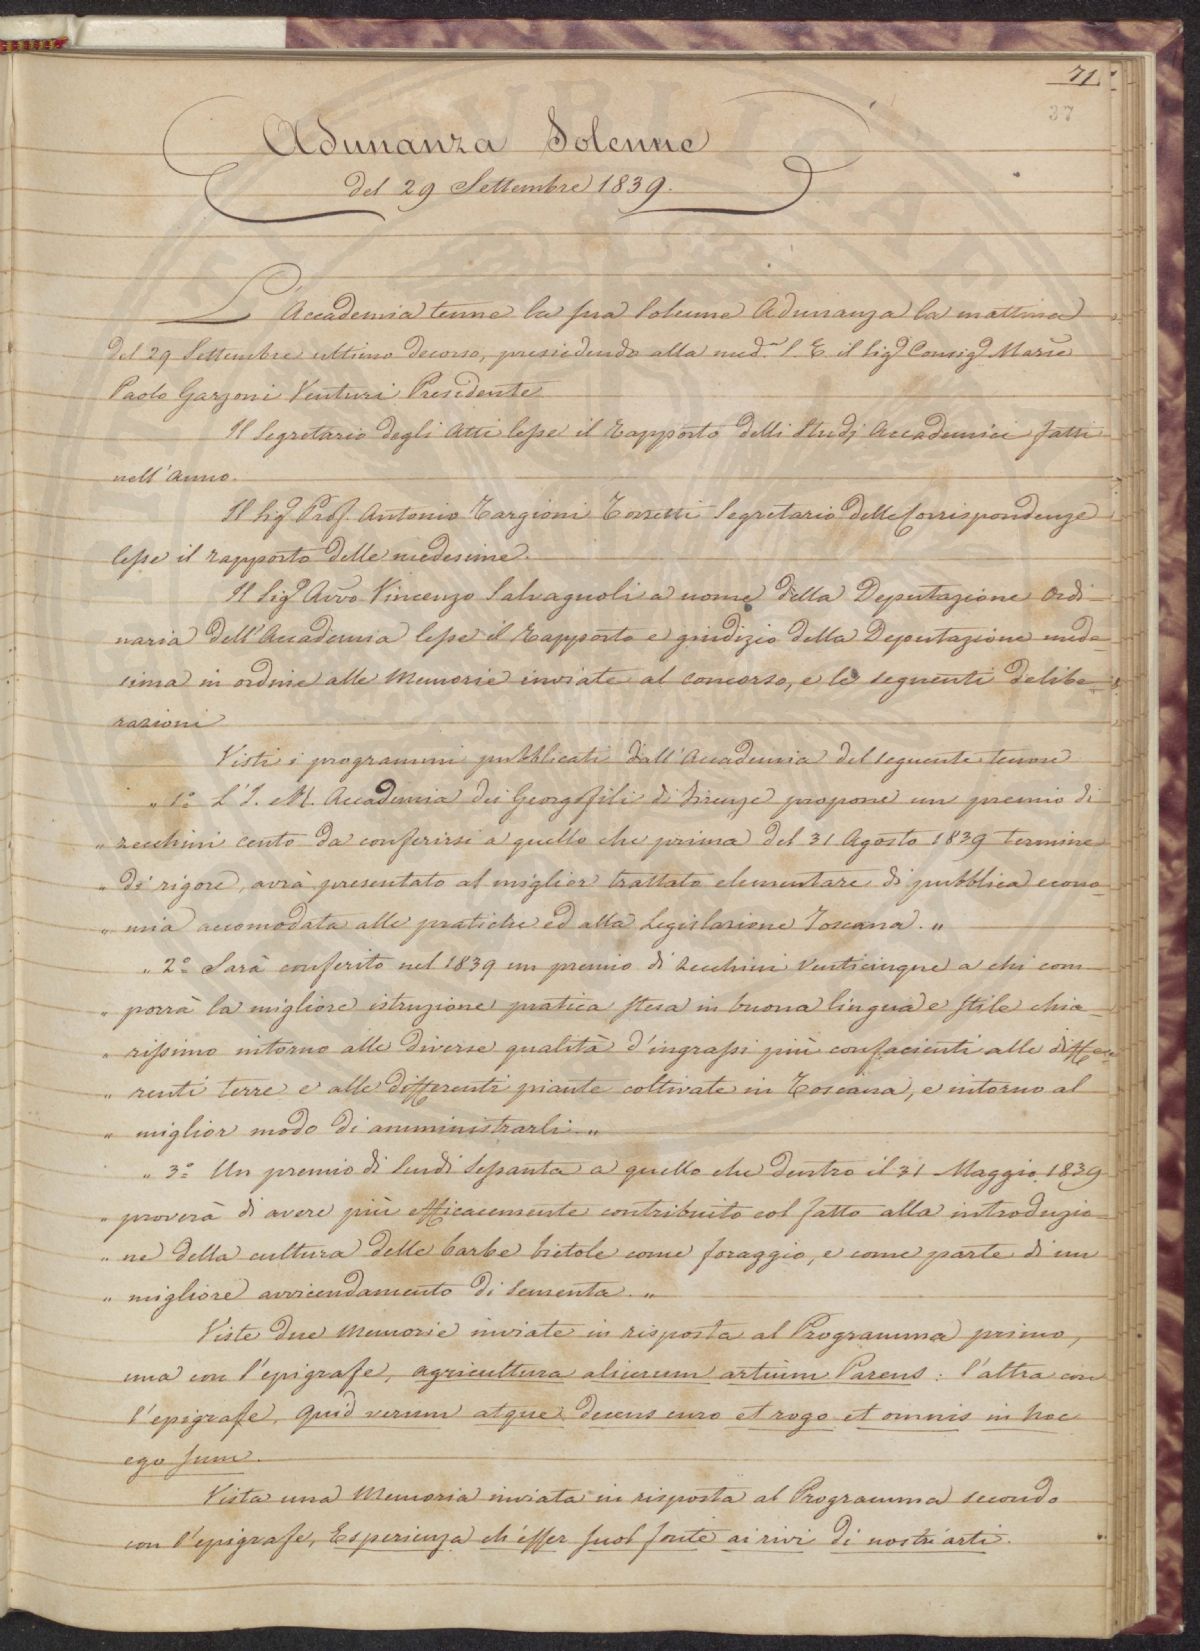 71
37
Adunanza Solenne
del 29 Settembre 1839.
L'Accademia tenne la sua Solenne Adunanza la mattina
del 29 Settembre ultimo decorso, presiedendo alla med.ma S. E. il Sig.e Consig.e March.e
Paolo Garzoni Venturi Presidente
Il Segretario degli Atti lesse il Rapporto delli Studj Accademici fatti
nell'Anno.
Il Sig.e Prof. Antonio Targioni Tozzetti Segretario delle Corrispondenze
lesse il rapporto delle medesime.
Il Sig.e Avv.o Vincenzo Salvagnoli a nome della Deputazione Ordi-
naria dell'Accademia lesse il Rapporto e giudizio della Deputazione mede-
sima in ordine alle Memorie inviate al concorso, e le seguenti delibe-
razioni
Visti i programmi pubblicati dall'Accademia del seguente tenore
„ 1.o L'I. e R. Accademia dei Georgofili di Firenze propone un premio di
„ zecchini cento da conferirsi a quello che prima del 31 Agosto 1839 termine
„ di rigore, avrà presentato al miglior trattato elementare di pubblica econo-
„ mia accomodata alle pratiche ed alla Legislazione Toscana. „
„ 2.o Sarà conferito nel 1839 un premio di zecchini venticinque a chi com-
„ porrà la migliore istruzione pratica stesa in buona lingua e stile chia-
„ rissimo intorno alle diverse qualità d'ingrassi più confacienti alle diffe-
„ renti terre e alle differenti piante coltivate in Toscana, e intorno al
„ miglior modo di amministrarli. „
„ 3.o Un premio di Scudi Sessanta a quello che dentro il 31 Maggio 1839
„ proverà di avere più efficacemente contribuito col fatto alla introduzio-
„ ne della cultura delle barbe bietole come foraggio, e come parte di un
„ migliore avvicendamento di Sementa. „
Viste due Memorie inviate in risposta al Programma primo,
una con l'epigrafe, agricultura aliarum artium Parens: l'altra con
l'epigrafe, Quid verum atque decens curo et rogo et omnis in hoc
ego sum.
Vista una Memoria inviata in risposta al Programma secondo
con l'epigrafe, Esperienza ch'esser suol fonte ai rivi di nostr'arti.